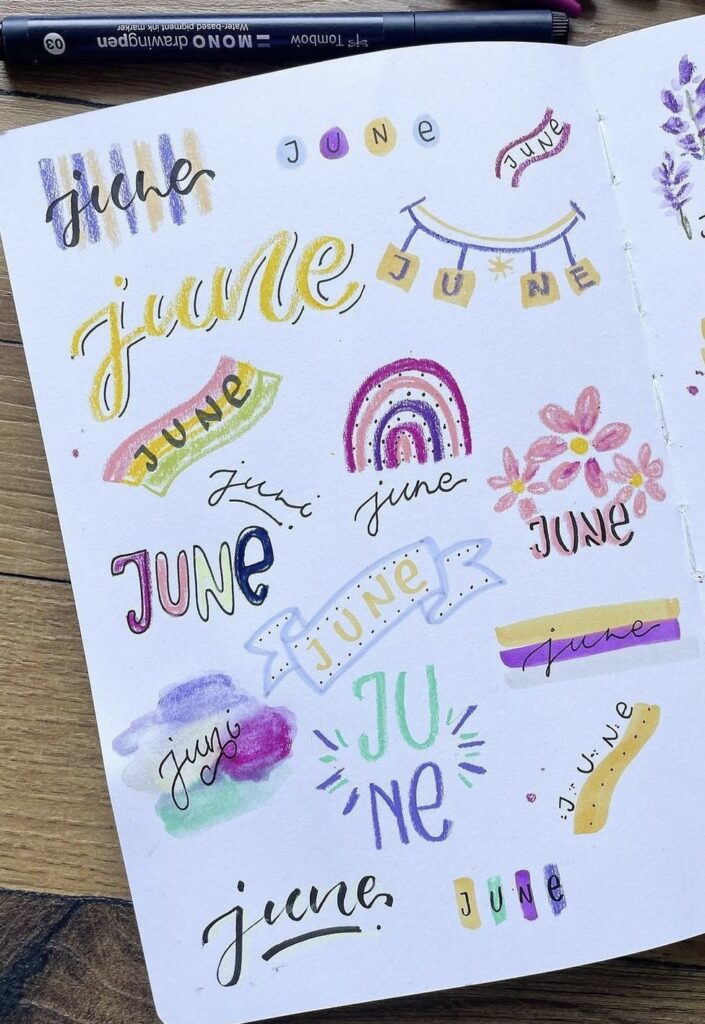 03
Water-based pigment ink marker
MONO drawingpen
Tombow
june
JUNe
JUNE
june
JUNE
JUNE
june
juni
JUNE
JUNe
JUNe
june
juni
JU
Ne
JUNe
june
JUNe